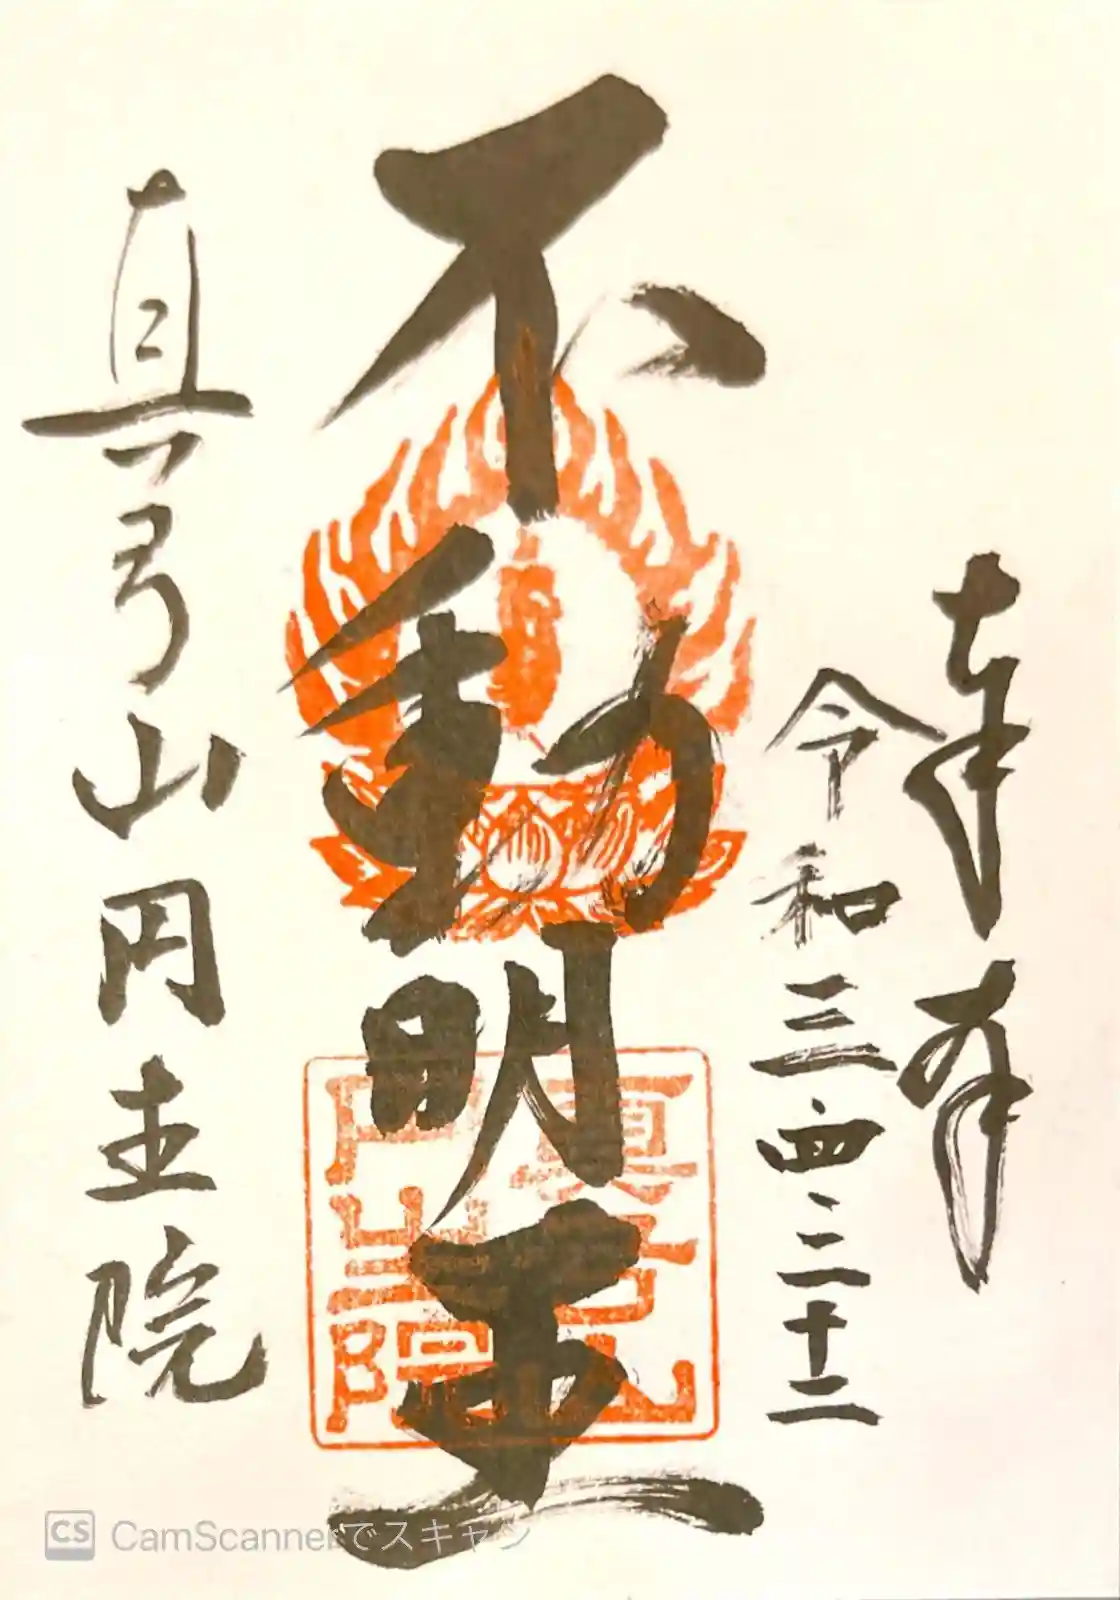 奉拝
令和三・四・二十二
不動明王
真弓山円生院
真弓山
円生院
CS CamScannerでスキャン